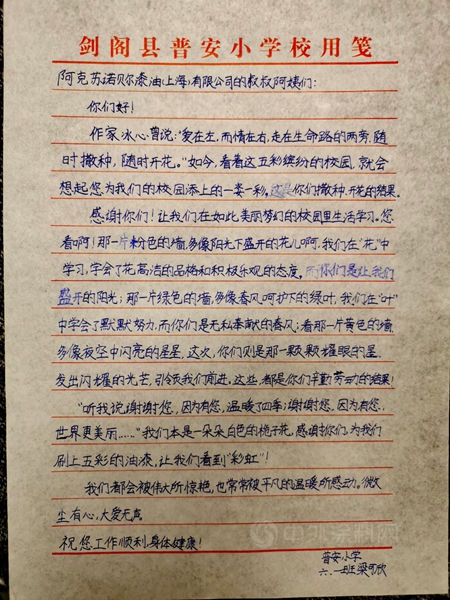 剑阁县普安小学校用笺
阿克苏诺贝尔漆油(上海)有限公司的叔叔阿姨们:
你们好!
作家冰心曾说:"爱在左,而情在右,走在生命路的两旁,随
时撒种,随时开花。"如今,看着这五彩缤纷的校园,就会
想起您为我们的校园添上的一姿一彩,这是你们撒种、开花的结果。
感谢你们!让我们在如此美丽梦幻的校园里生活学习。您
看啊!那一片粉色的墙,多像阳光下盛开的花儿啊,我们在"花"中
学习,学会了花高洁的品格和积极乐观的态度,而你们是让我们
盛开的阳光;那一片绿色的墙,多像春风呵护下的绿叶,我们在"叶"
中学会了默默努力,而你们是无私奉献的春风;看那一片黄色的墙,
多像夜空中闪亮的星星,这次,你们则是那一颗颗耀眼的星,
发出闪耀的光芒,引领我们前进,这些,都是你们辛勤劳动的结果!
"听我说谢谢您,因为有您,温暖了四季;谢谢您,因为有您,
世界更美丽……"我们本是一朵朵白色的栀子花,感谢你们,为我们
刷上五彩的油漆,让我们看到"彩虹"!
我们都会被伟大所惊艳,也常常被平凡的温暖所感动。微
尘有心,大爱无声。
祝您工作顺利,身体健康!
普安小学
六.一班梁可欣